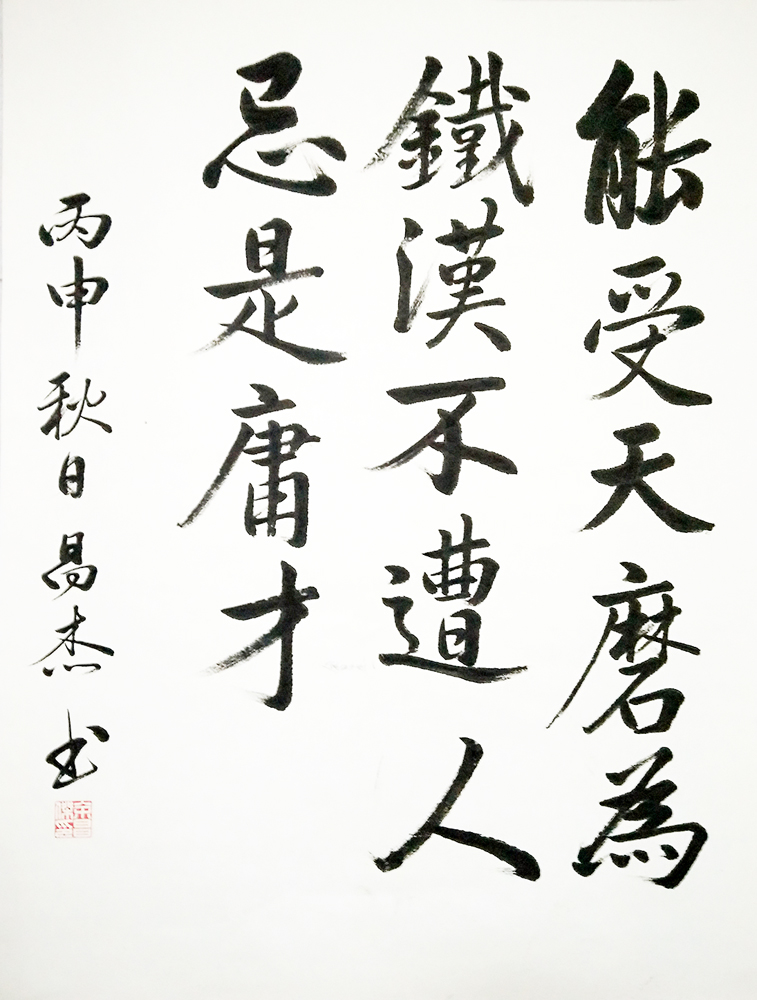 能受天磨為
鐵漢不遭人
忌是庸才
丙申秋日昌杰书